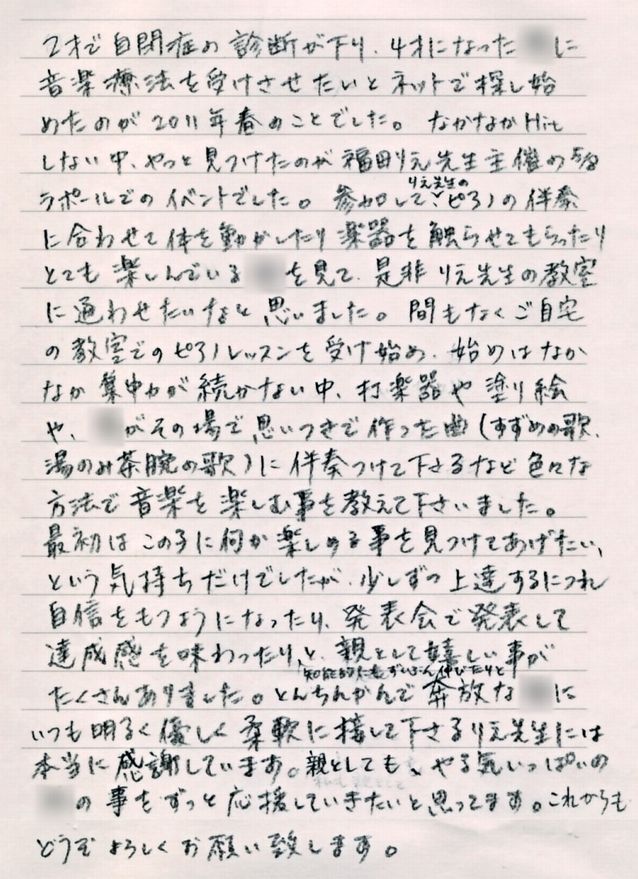 2才で自閉症の診断が下り、4才になった に
音楽療法を受けさせたいとネットで探し始
めたのが2011年春のことでした。なかなかHit
しない中、やっと見つけたのが福田りえ先生主催の
ラポールでのイベントでした。参加してりえ先生のピアノの伴奏
に合わせて体を動かしたり楽器を触らせてもらったり
とても楽しんでいる を見て、是非りえ先生の教室
に通わせたいなと思いました。間もなくご自宅
の教室でのピアノレッスンを受け始め、始めはなか
なか集中力が続かない中、打楽器や塗り絵
や、 がその場で思いつきで作った曲(すずめの歌、
湯のみ茶腕の歌)に伴奏つけて下さるなど色々な
方法で音楽を楽しむ事を教えて下さいました。
最初はこの子に何か楽しめる事を見つけてあげたい、
という気持ちだけでしたが、少しずつ上達するにつれ
自信をもつようになったり、発表会で発表して
達成感を味わったり、と、親として嬉しい事が
知能的にもずいぶん伸びたりと
たくさんありました。とんちんかんで奔放な に
いつも明るく優しく柔軟に接して下さるりえ先生には
本当に感謝しています。親としても、やる気いっぱいの
の事をずっと応援していきたいと思ってます。これからも
どうぞよろしくお願い致します。